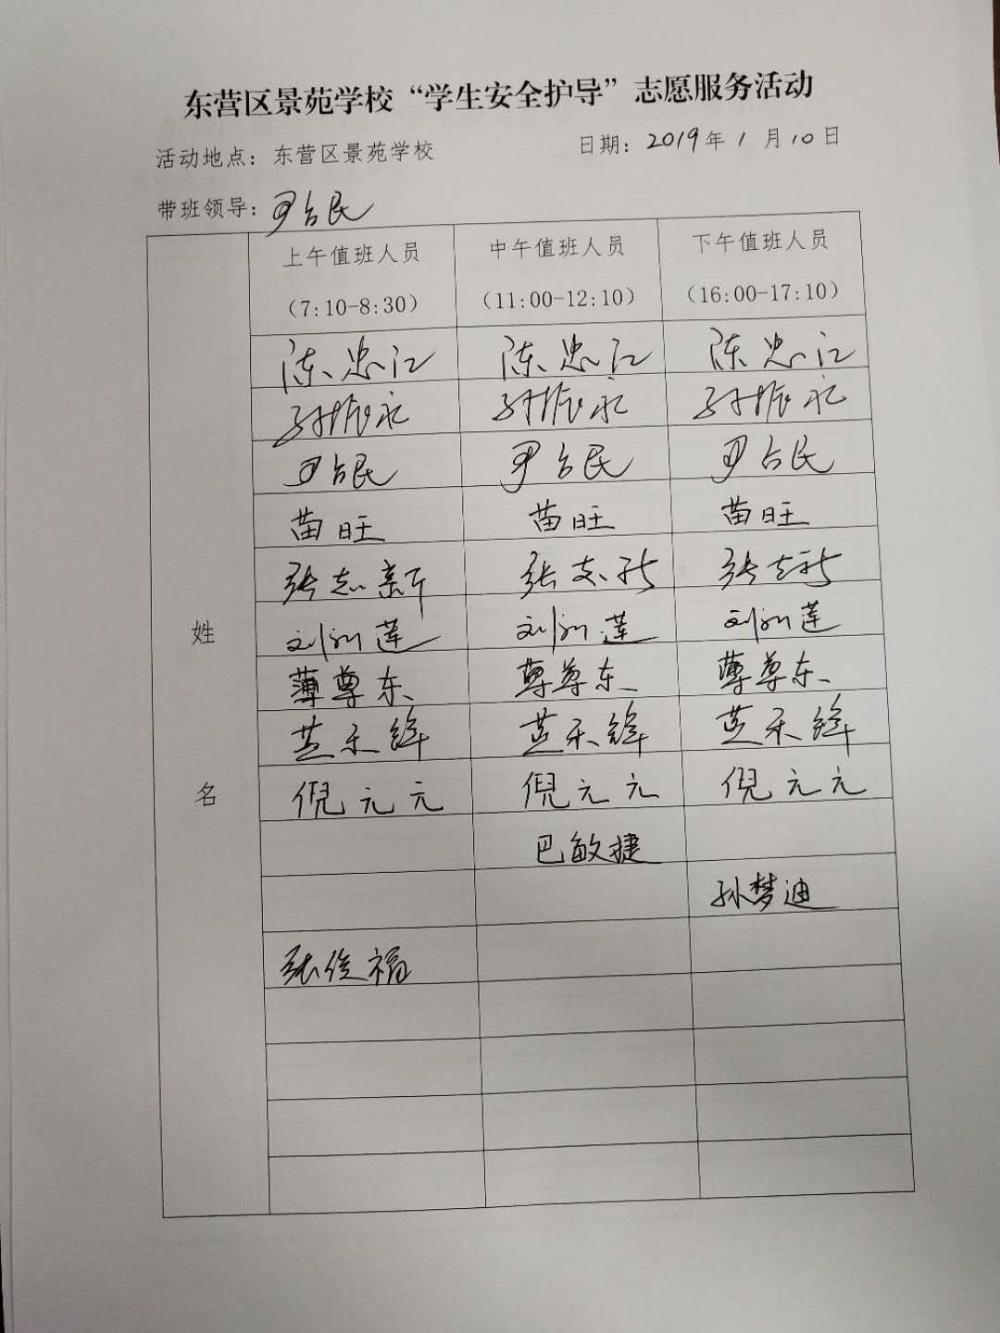 东营区景苑学校“学生安全护导”志愿服务活动
活动地点：东营区景苑学校 日期：2019年1月10日
带班领导：尹台民
上午值班人员 中午值班人员 下午值班人员
（7:10-8:30） （11:00-12:10） （16:00-17:10）
陈忠江 陈忠江 陈忠江
孙振永 孙振永 孙振永
尹台民 尹台民 尹台民
苗旺 苗旺 苗旺
张志新 张志新 张志新
姓 刘 莲 刘 莲 刘 莲
薄尊东 薄尊东 薄尊东
名 倪元元 倪元元 倪元元
巴敏捷
孙梦迪
张俊福